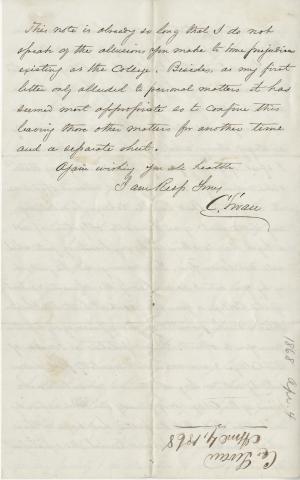 This note is already so long that I do not
speak of the allusion you make to some prejudice
existing at the College. Besides, as my first
letter only alluded to personal matters it has
seemed most appropriate so to confine this
leaving those other matters for another time
and a separate sheet.
Again wishing you all health
I am Resp. Yours
C. Swan
1868 Apr. 4
C. Swan
April 4, 1868